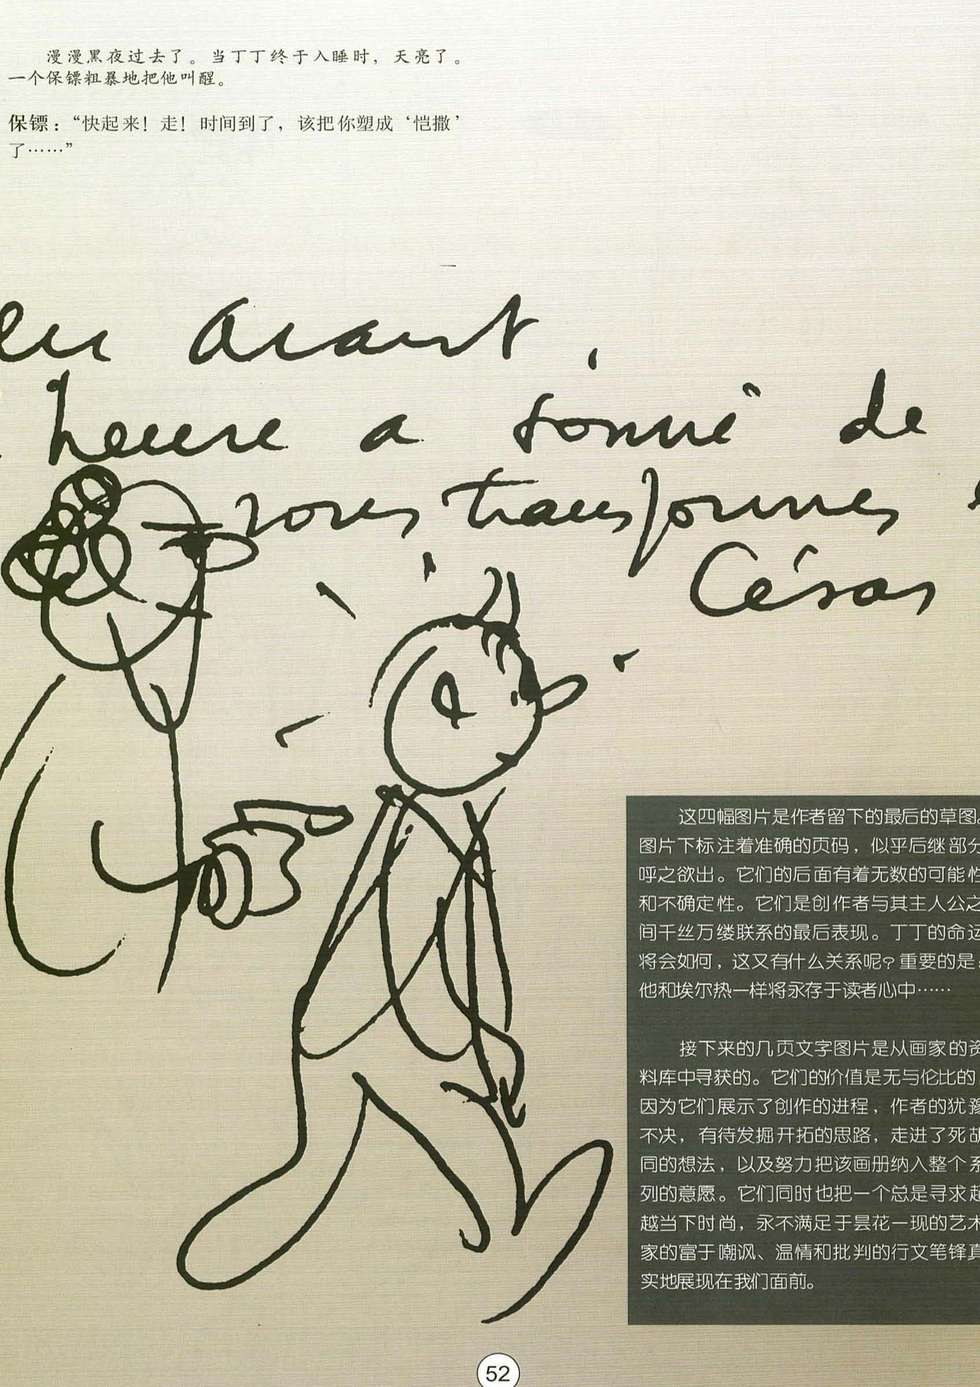 漫漫黑夜过去了。当丁丁终于入睡时，天亮了。
一个保镖粗暴地把他叫醒。
保镖：“快起来！走！时间到了，该把你塑成‘恺撒’
了……”
en avant,
heure a sonné de
vous transformer
César
这四幅图片是作者留下的最后的草图。
图片下标注着准确的页码，似乎后继部分
呼之欲出。它们的后面有着无数的可能性
和不确定性。它们是创作者与其主人公之
间千丝万缕联系的最后表现。丁丁的命运
将会如何，这又有什么关系呢？重要的是：
他和埃尔热一样将永存于读者心中……
接下来的几页文字图片是从画家的资
料库中寻获的。它们的价值是无与伦比的，
因为它们展示了创作的进程，作者的犹豫
不决，有待发掘开拓的思路，走进了死胡
同的想法，以及努力把该画册纳入整个系
列的意愿。它们同时也把一个总是寻求超
越当下时尚，永不满足于昙花一现的艺术
家的富于嘲讽、温情和批判的行文笔锋真
实地展现在我们面前。
52